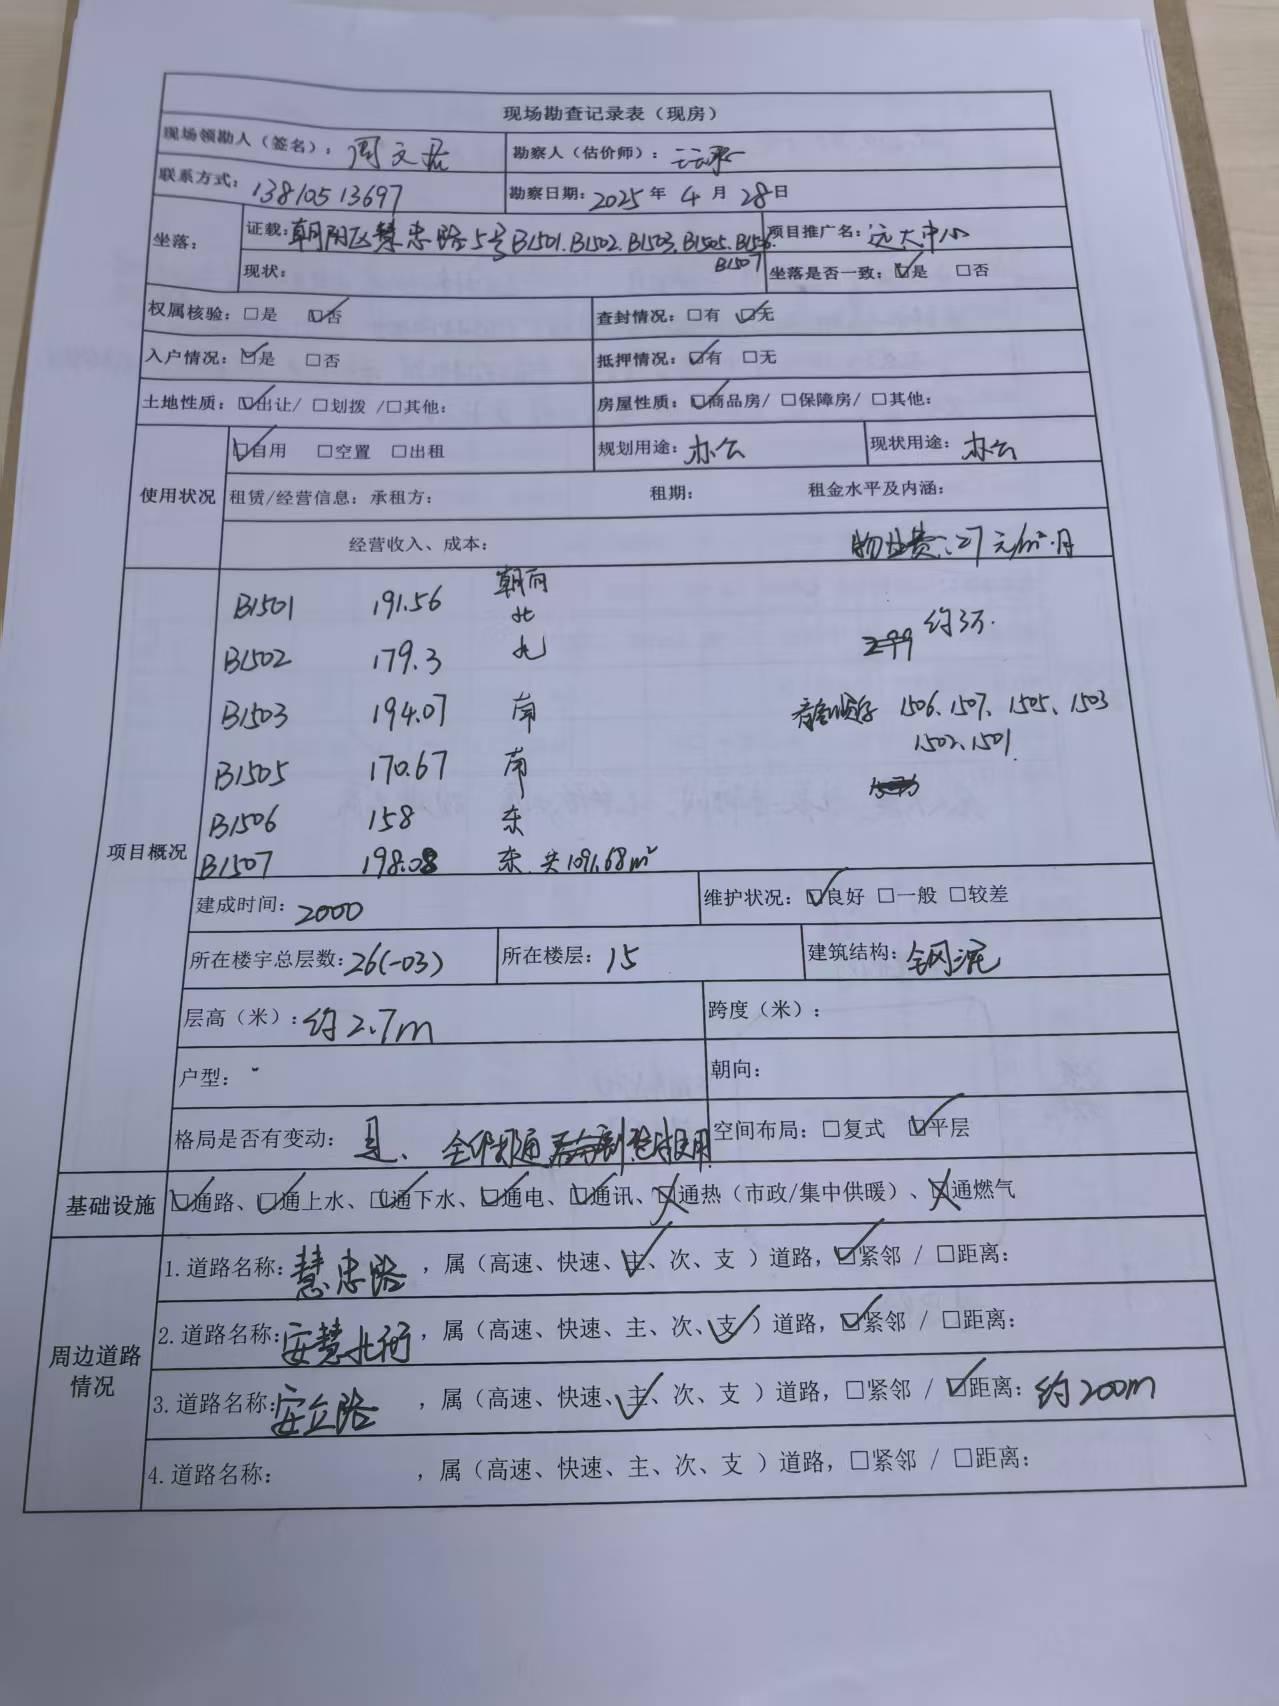 现场勘查记录表（现房）
现场领勘人（签名）： 周文君 勘察人（估价师）：
联系方式：13810513697 勘察日期：2025年 4 月 28日
坐落： 证载：朝阳区慧忠路5号B1501.B1502.B1503.B1505.B1506. 项目推广名：远大中心
B1507
现状： 坐落是否一致：☑是 □否
权属核验：□是 ☑否 查封情况：□有 ☑无
入户情况：☑是 □否 抵押情况：☑有 □无
土地性质：☑出让/ □划拨 /□其他： 房屋性质：☑商品房/ □保障房/ □其他：
使用状况 ☑自用 □空置 □出租 规划用途：办公 现状用途：办公
租赁/经营信息：承租方： 租期： 租金水平及内涵：
经营收入、成本： 物业费：27元/m²·月
项目概况
朝向
B1501 191.56 北
B1502 179.3 北 约3万.
B1503 194.07 南 1506、1507、1505、1503
1502、1501.
B1505 170.67 南
B1506 158 东
B1507 198.08 东. 共1091.68m²
建成时间：2000 维护状况：☑良好 □一般 □较差
所在楼宇总层数：26(-03) 所在楼层：15 建筑结构：钢混
层高（米）：约2.7m 跨度（米）：
户型： 朝向：
格局是否有变动： 是、全部打通 使用 空间布局：□复式 ☑平层
基础设施 ☑通路、☑通上水、☑通下水、☑通电、☑通讯、☒通热（市政/集中供暖）、☒通燃气
周边道路情况
1.道路名称：慧忠路 ，属（高速、快速、主、次、支 ）道路，☑紧邻 / □距离：
2.道路名称：安慧北街 ，属（高速、快速、主、次、支 ）道路，☑紧邻 / □距离：
3.道路名称：安立路 ，属（高速、快速、主、次、支 ）道路，□紧邻 / ☑距离：约200m
4.道路名称： ，属（高速、快速、主、次、支 ）道路，□紧邻 / □距离：